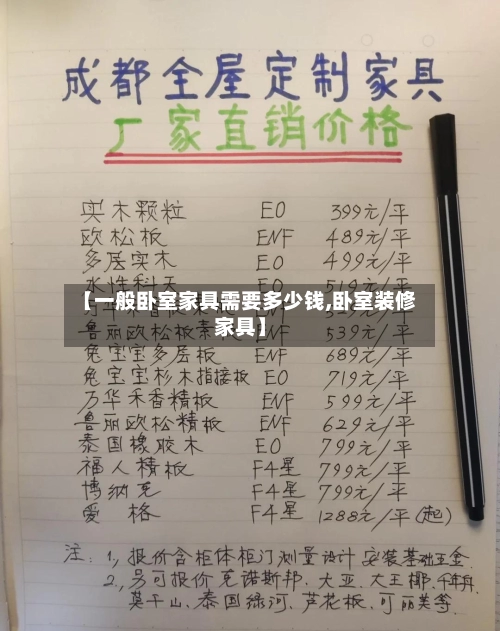 成都全屋定制家具
厂家直销价格
实木颗粒 E0 399元/平
欧松板 ENF 489元/平
多层实木 E0 499元/平
水性科天 E0 519元/平
【一般卧室家具需要多少钱,卧室装修
家具】
鲁丽欧松板素 539元/平
兔宝宝多层板 ENF 689元/平
兔宝宝杉木指接板 E0 719元/平
万华禾香精板 ENF 599元/平
鲁丽欧松精板 ENF 629元/平
泰国橡胶木 E0 799元/平
福人精板 F4星 799元/平
博纳克 F4星 799元/平
爱格 F4星 1288元/平(起)
注:1,报价含柜体柜门测量设计安装基础五金.
2,另可报价克诺斯邦.大亚.大王椰.千年舟.
莫干山.泰国绿河.芦花板.可丽芙等.